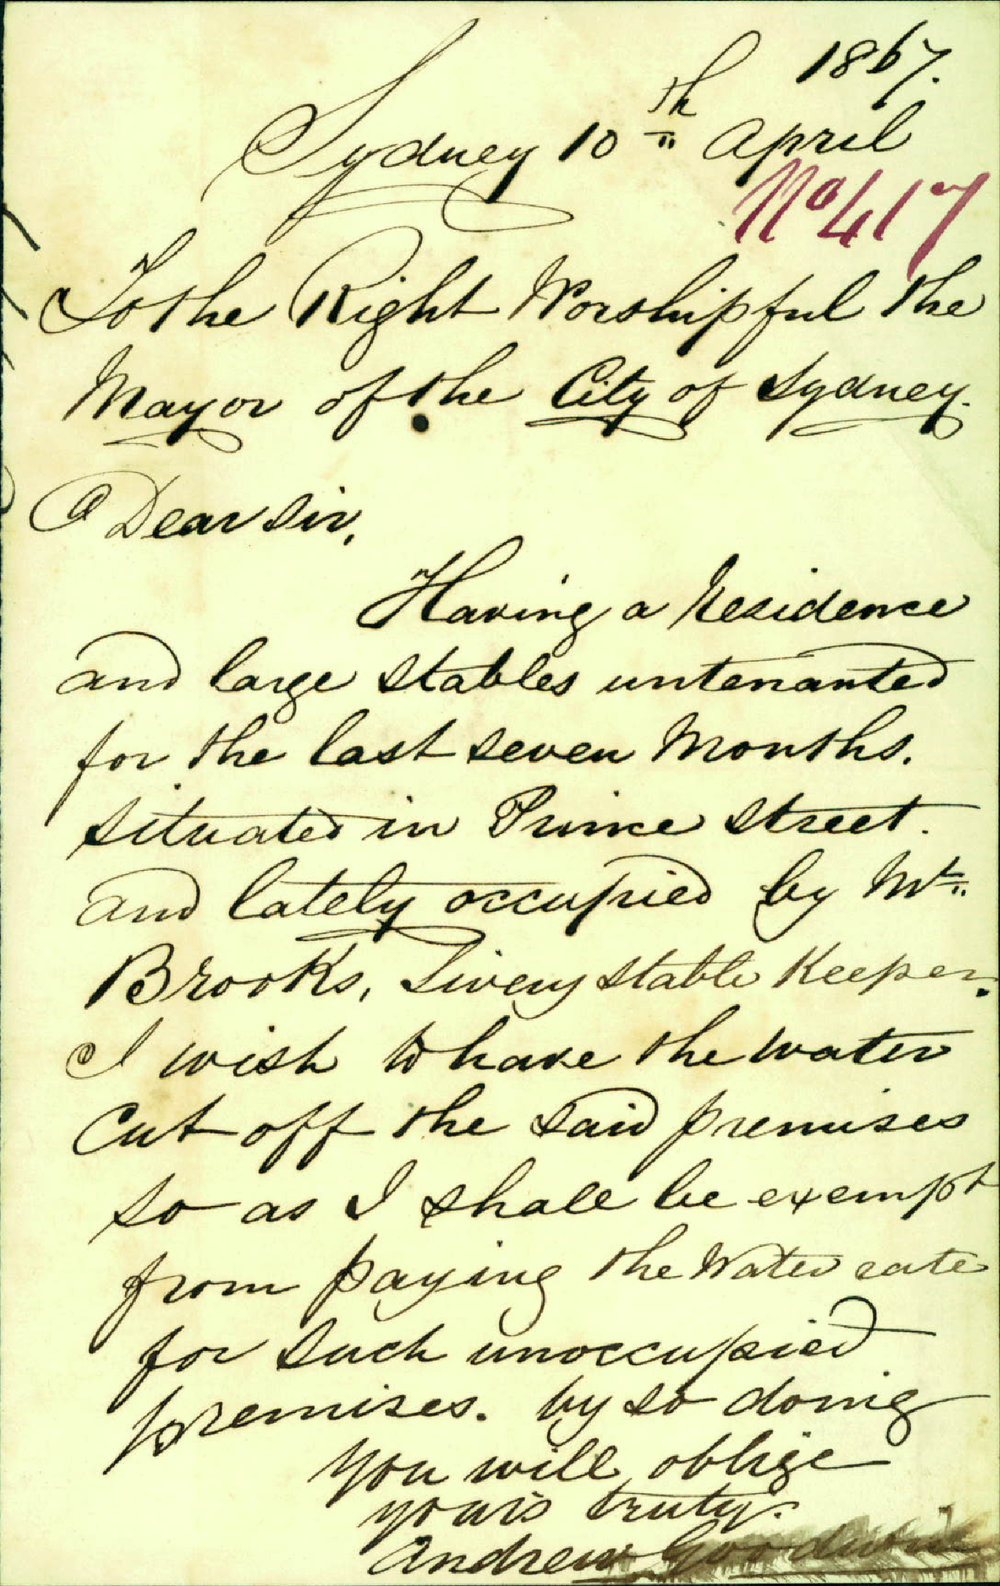 1867.
Sydney 10th April
No 417
To the Right Worshipful the
Mayor of the City of Sydney.
Dear Sir,
Having a Residence
and large stables untenanted
for the last seven Months.
situated in Prince Street.
and lately occupied by Mr.
Brooks, Livery stable Keeper.
I wish to have the water
Cut off the said premises
so as I shall be exempt
from paying the Water rate
for such unoccupied
premises. by so doing
you will oblige
yours truly.
Andrew